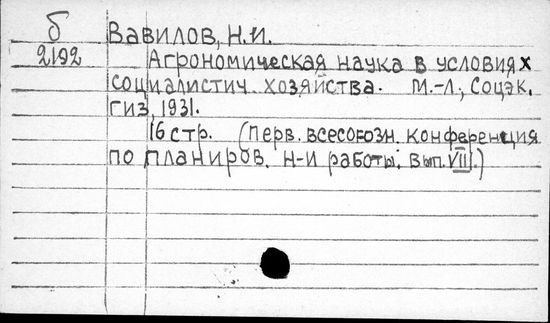 б Вавилов, Н.И.
2192 Агрономическая наука в условиях
социалистич. хозяйства. М.-Л., Соцэк.
гиз, 1931.
16 стр. (Перв. всесоюзн. конференция
по планиров. н-и работы. Вып. VII.)